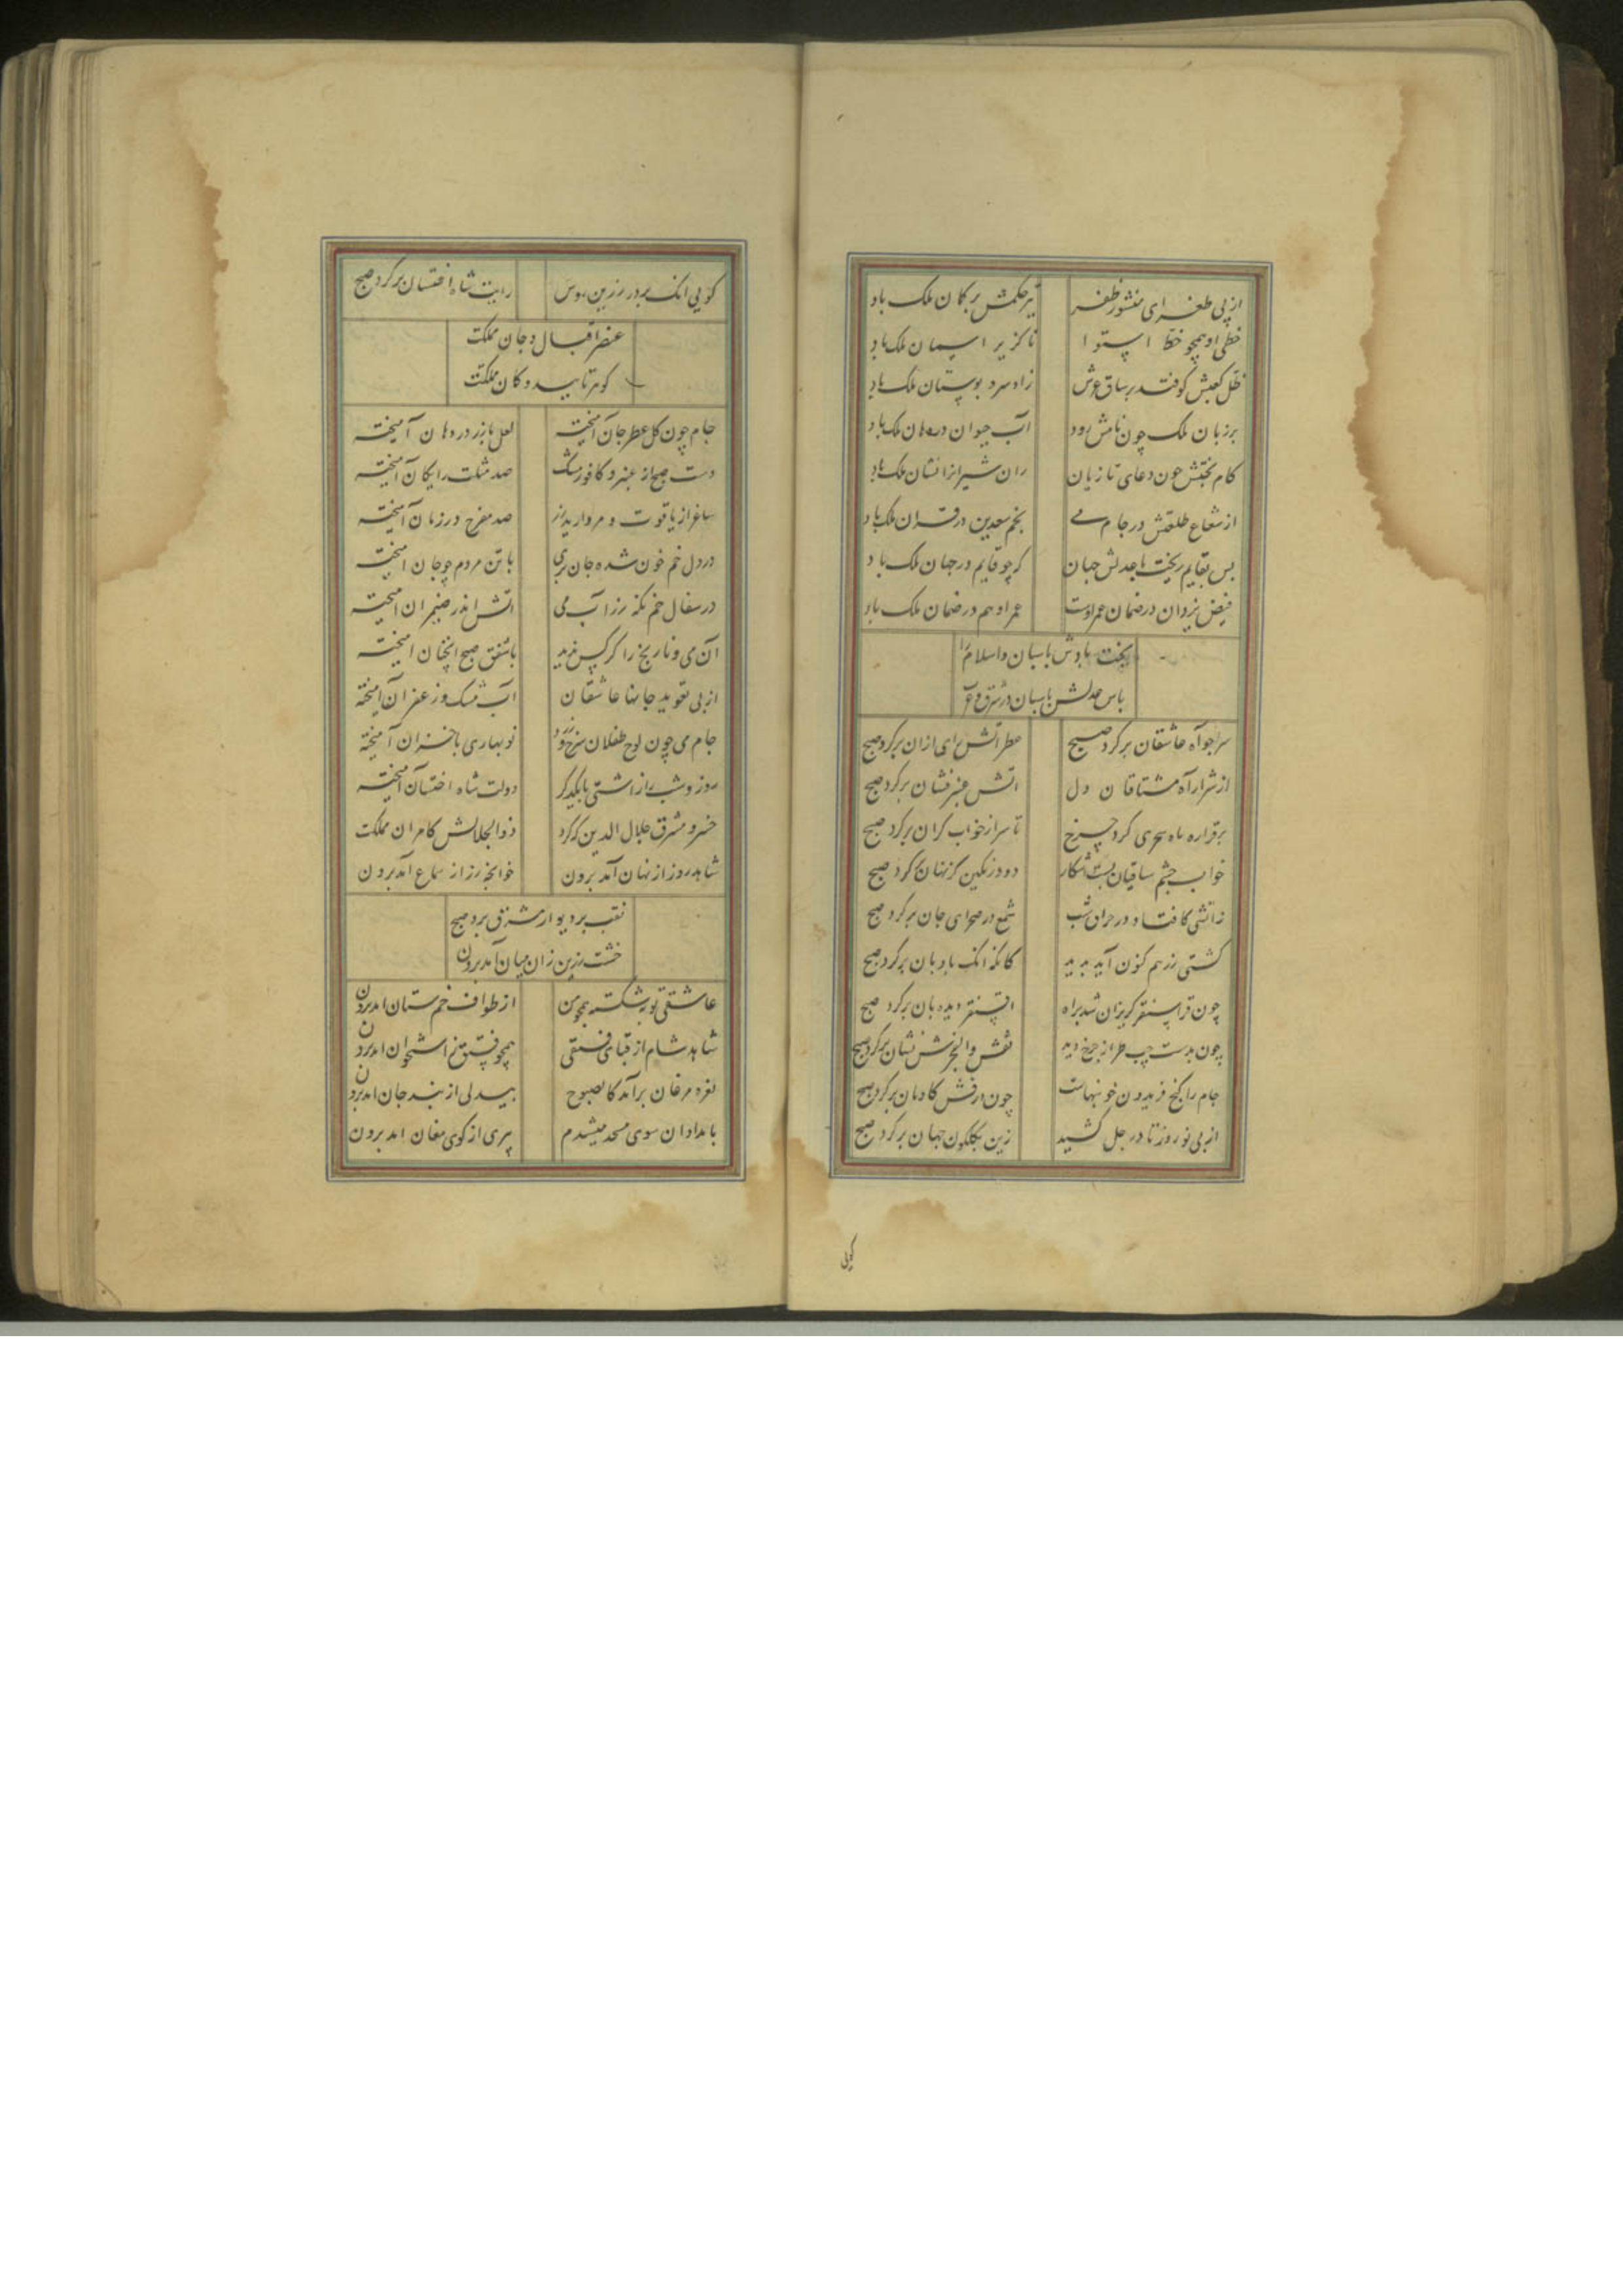 از پی طغرای منشور ظفر تیر حکمش بر کمان ملک باد
خطی او همچو خط استوا ناگزیر اسمان ملک باد
ظل کعبش کوفتد بر ساق عرش زاد سرو بوستان ملک باد
بر زبان ملک چون نامش رود آب حیوان در دهان ملک باد
کام بختش چون دعای تازیان ران شیران را نشان ملک باد
از شعاع طلعتش در جام می نجم سعدین در قران ملک باد
بس بقایم ریخت با عدلش جهان کو چو قایم در جهان ملک باد
فیض یزدان در ضمان عمر اوست عمر او هم در ضمان ملک باد
بخت بادش پاسبان و اسلام را
پاس عدلش پاسبان در شرق و غرب
سر چو آه عاشقان بر کرد صبح عطر آتش زای ازان بر کرد صبح
از شرار آه مشتاقان دل اتش عنبر فشان بر کرد صبح
بر قراره ماه سحری کرد چرخ تا سر از خواب کران بر کرد صبح
خواب چشم ساقیان بست اشکار دود رنکین کز نهان بر کرد صبح
زاتشی کافتاد در حراق شب شمع در صحرای جان بر کرد صبح
کشتی زر هم کنون آید پدید کانکه انک بادبان بر کرد صبح
چون قراسنقر کریزان شد براه اقسنقر دیده بان بر کرد صبح
چون بدست چپ طراز چرخ دید نقش والفجرش نشان بر کرد صبح
جام را کنج فریدون خونبهاست چون درفش کاویان بر کرد صبح
از پی نوروز تا در جل کشید زین بکلکون جهان بر کرد صبح
کویی
کویی انک بر در زرین روس رایت شاه اخستان بر کرد صبح
عنصر اقبال و جان مملکت
کوهر تایید و کان مملکت
جام چون کل عطر جان آمیخته لعل با زر در دهان آمیخته
دست صبح از عنبر و کافور و مشک صد مثلث رایکان آمیخته
ساغر از یاقوت و مروارید زر صد مفرح در زمان آمیخته
در دل خم خون شده جان پری با تن مردم چو جان امیخته
در سفال خم نکه رز آب می اتش اندر ضیمران امیخته
آن می و نارنج را کر کس ندید با شفق صبح انچنان امیخته
از پی تعوید جانها عاشقان آب مشک و زعفران امیخته
جام می چون لوح طفلان سرخ و زرد نو بهاری با خزران آمیخته
روز و شب را ز اشتی با یکدیکر دولت شاه اخستان آمیخته
خسرو مشرق جلال الدین که کرد ذوالجلالش کامران مملکت
شاهد روز از نهان آمد برون خوانچه زر ز اسماع آمد برون
نقب بر دیوار مشرق برد صبح
خشت زرین زان میان آمد برون
عاشقی توبه شکسته همچو من از طواف خمستان امد برون
شاهد شام از قبای فستقی همچو فستق ز استخوان امد برون
نعره مرغان برآمد کالصبوح بیدلی از بند جان امد برون
بامدادان سوی مسجد میشدم پیری از کوی مغان امد برون